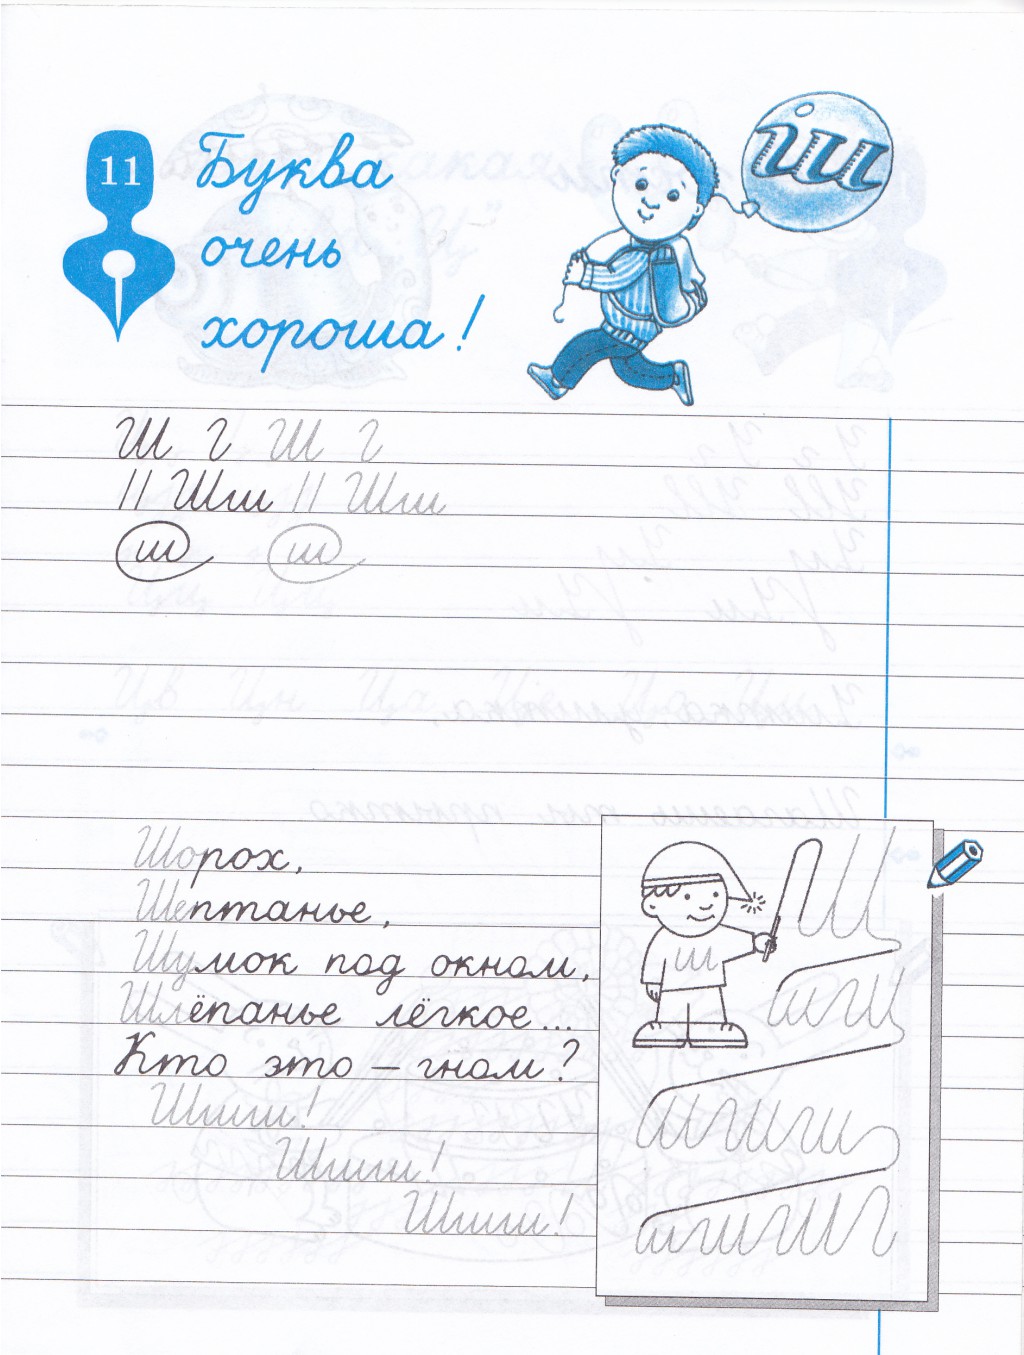 11
Буква
очень
хороша!
ш
Ш г Ш г
// Шш // Шш
ш ш
Шорох,
Шептанье,
Шумок под окном,
Шлёпанье лёгкое...
Кто это – гном?
Шшш!
Шшш!
Шшш!
ш
Ш